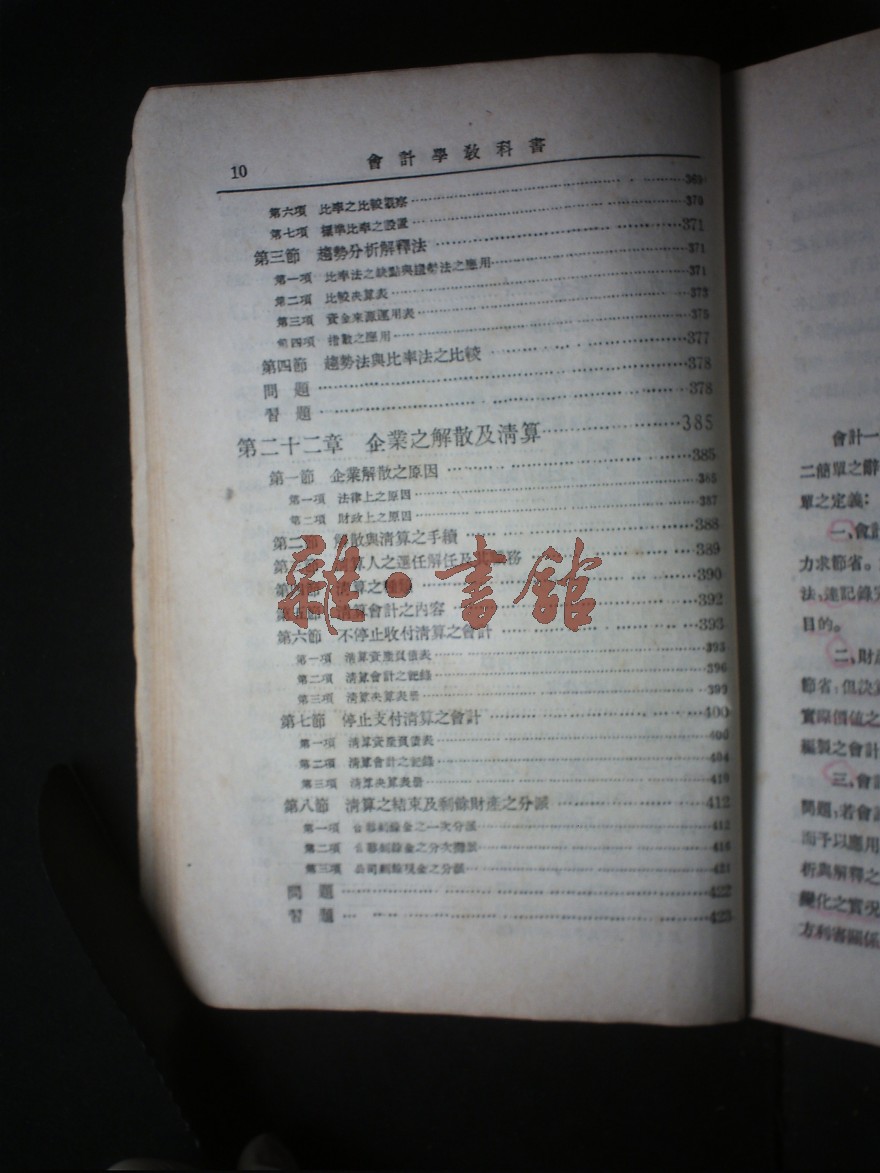 10 會計學教科書
第六項 比率之比較觀察 369
第七項 標準比率之設置 370
第三節 趨勢分析解釋法 371
第一項 比率法之缺點與趨勢法之應用 371
第二項 比較決算表 373
第三項 資金來源運用表 375
第四項 指數之應用 377
第四節 趨勢法與比率法之比較 378
問題 378
習題
第二十二章 企業之解散及清算 385
第一節 企業解散之原因 385
第一項 法律上之原因 385
第二項 財政上之原因 387
第二節 散與清算之手續 388
算人之選任解任及 務 389
第四節 清算之 390
第五節 清算會計之內容 392
第六節 不停止收付清算之會計 393
第一項 清算資產負債表 393
第二項 清算會計之記錄 396
第三項 清算決算表册 399
第七節 停止支付清算之會計 400
第一項 清算資產負債表 400
第二項 清算會計之記錄 404
第三項 清算決算表册 410
第八節 清算之結束及剩餘財產之分派 412
第一項 合夥剩餘金之一次分派 412
第二項 合夥剩餘金之分次攤派 416
第三項 公司剩餘現金之分派 421
問題 422
習題 423
雜·書館
會計一
二簡單之辭
單之定義：
一、會計
力求節省。
法、速記錄
目的。
二、財產
節省；但決算
實際價值之
編製之會計
三、會計
問題；若會計
而予以應用
析與解釋之
變化之實況
方利害關係